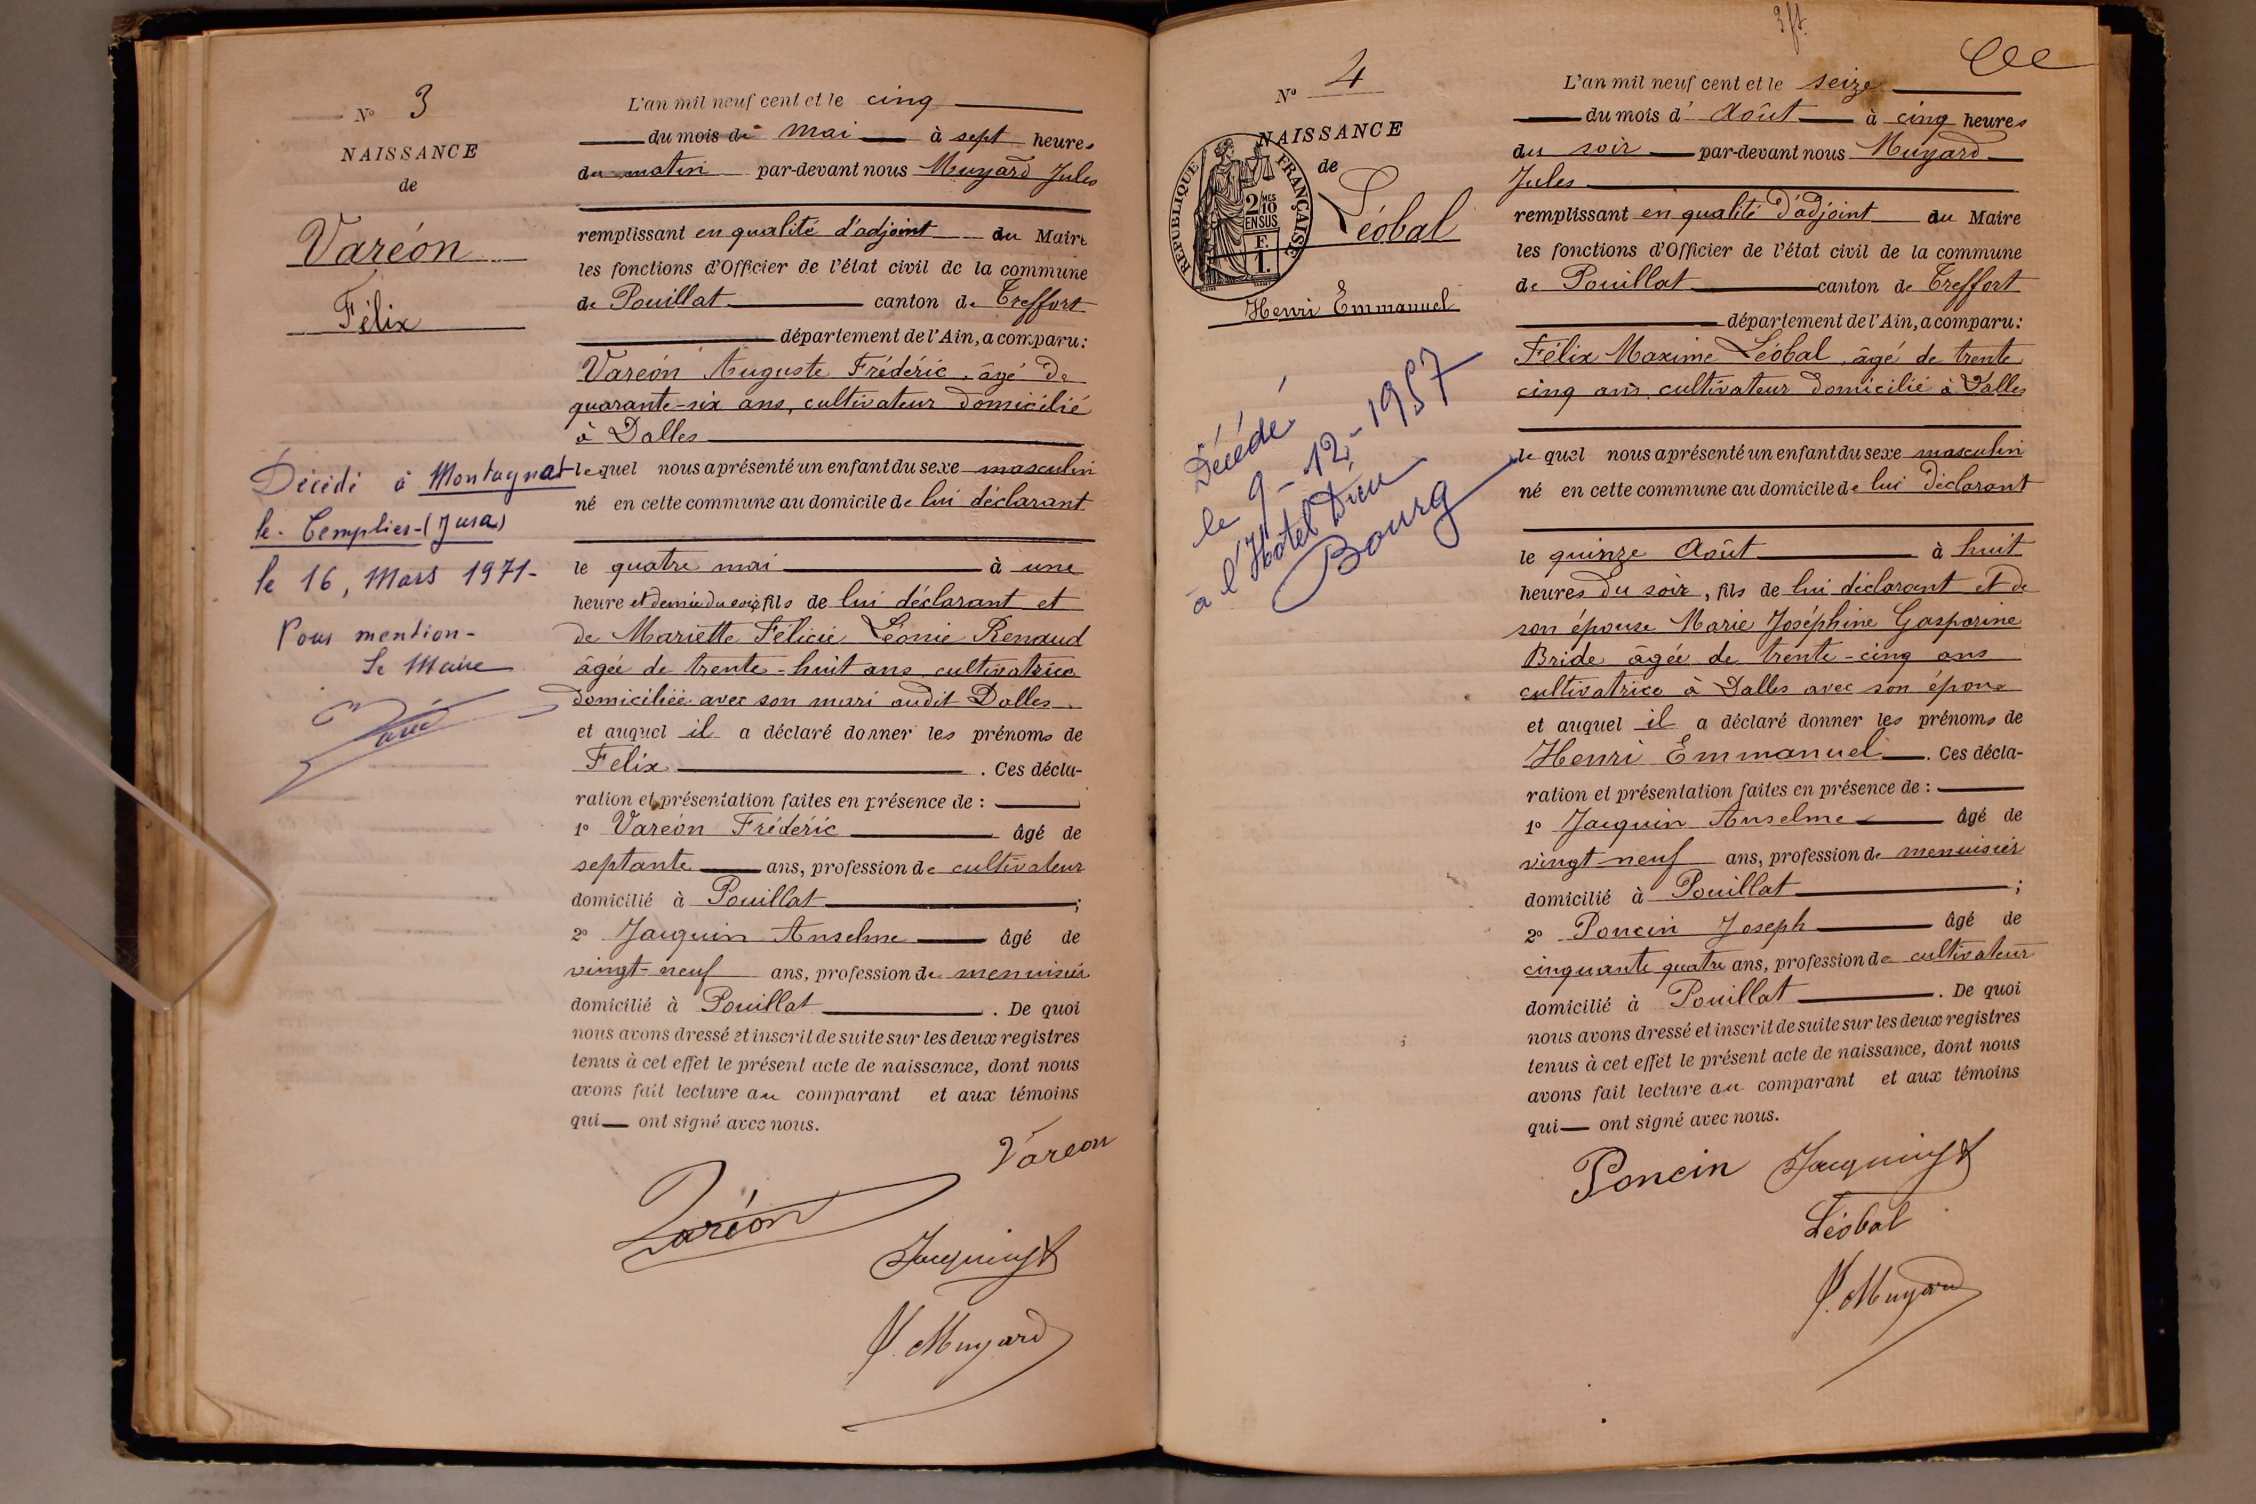 N° 3
NAISSANCE
de
Varéon
Félix
Décédé à Montagnat
le-Templier-(Jura)
le 16, Mars 1971-
Pour mention-
Le Maire
L'an mil neuf cent et le cinq
du mois de mai à sept heures
du matin par-devant nous Muyard Jules
remplissant en qualité d'adjoint au Maire
les fonctions d'Officier de l'état civil de la commune
de Pouillat canton de Treffort
département de l'Ain, a comparu:
Varéon Auguste Frédéric, âgé de
quarante-six ans, cultivateur domicilié
à Dalles
lequel nous a présenté un enfant du sexe masculin
né en cette commune au domicile de lui déclarant
le quatre mai à une
heure et demie du soir, fils de lui déclarant et
de Mariette Félicie Léonie Renaud
âgée de trente-huit ans cultivatrice
domiciliée avec son mari audit Dalles
et auquel il a déclaré donner les prénoms de
Felix . Ces décla-
ration et présentation faites en présence de :
1° Varéon Frédéric âgé de
septante ans, profession de cultivateur
domicilié à Pouillat ;
2° Jacquin Anselme âgé de
vingt-neuf ans, profession de menuisier
domicilié à Pouillat . De quoi
nous avons dressé et inscrit de suite sur les deux registres
tenus à cet effet le présent acte de naissance, dont nous
avons fait lecture au comparant et aux témoins
qui ont signé avec nous.
Vareon
Varéon
Jacquin
J. Muyard
N° 4
NAISSANCE
de
RÉPUBLIQUE FRANÇAISE
2/10
MES
EN SUS
F.
1.
Léobal
Henri Emmanuel
Décédé
le 9-12-1957
à l'Hotel Dieu
Bourg
L'an mil neuf cent et le seize
du mois d' Août à cinq heures
du soir par-devant nous Muyard
Jules
remplissant en qualité d'adjoint au Maire
les fonctions d'Officier de l'état civil de la commune
de Pouillat canton de Treffort
département de l'Ain, a comparu:
Félix Maxime Léobal, âgé de trente
cinq ans, cultivateur domicilié à Dalles
le quel nous a présenté un enfant du sexe masculin
né en cette commune au domicile de lui déclarant
le quinze Août à huit
heures du soir, fils de lui déclarant et de
son épouse Marie Joséphine Gasparine
Bride âgée de trente-cinq ans
cultivatrice à Dalles avec son époux
et auquel il a déclaré donner les prénoms de
Henri Emmanuel . Ces décla-
ration et présentation faites en présence de :
1° Jacquin Anselme âgé de
vingt neuf ans, profession de menuisier
domicilié à Pouillat ;
2° Poncin Joseph âgé de
cinquante quatre ans, profession de cultivateur
domicilié à Pouillat . De quoi
nous avons dressé et inscrit de suite sur les deux registres
tenus à cet effet le présent acte de naissance, dont nous
avons fait lecture au comparant et aux témoins
qui ont signé avec nous.
Poncin Jacquin
Léobal
J. Muyard